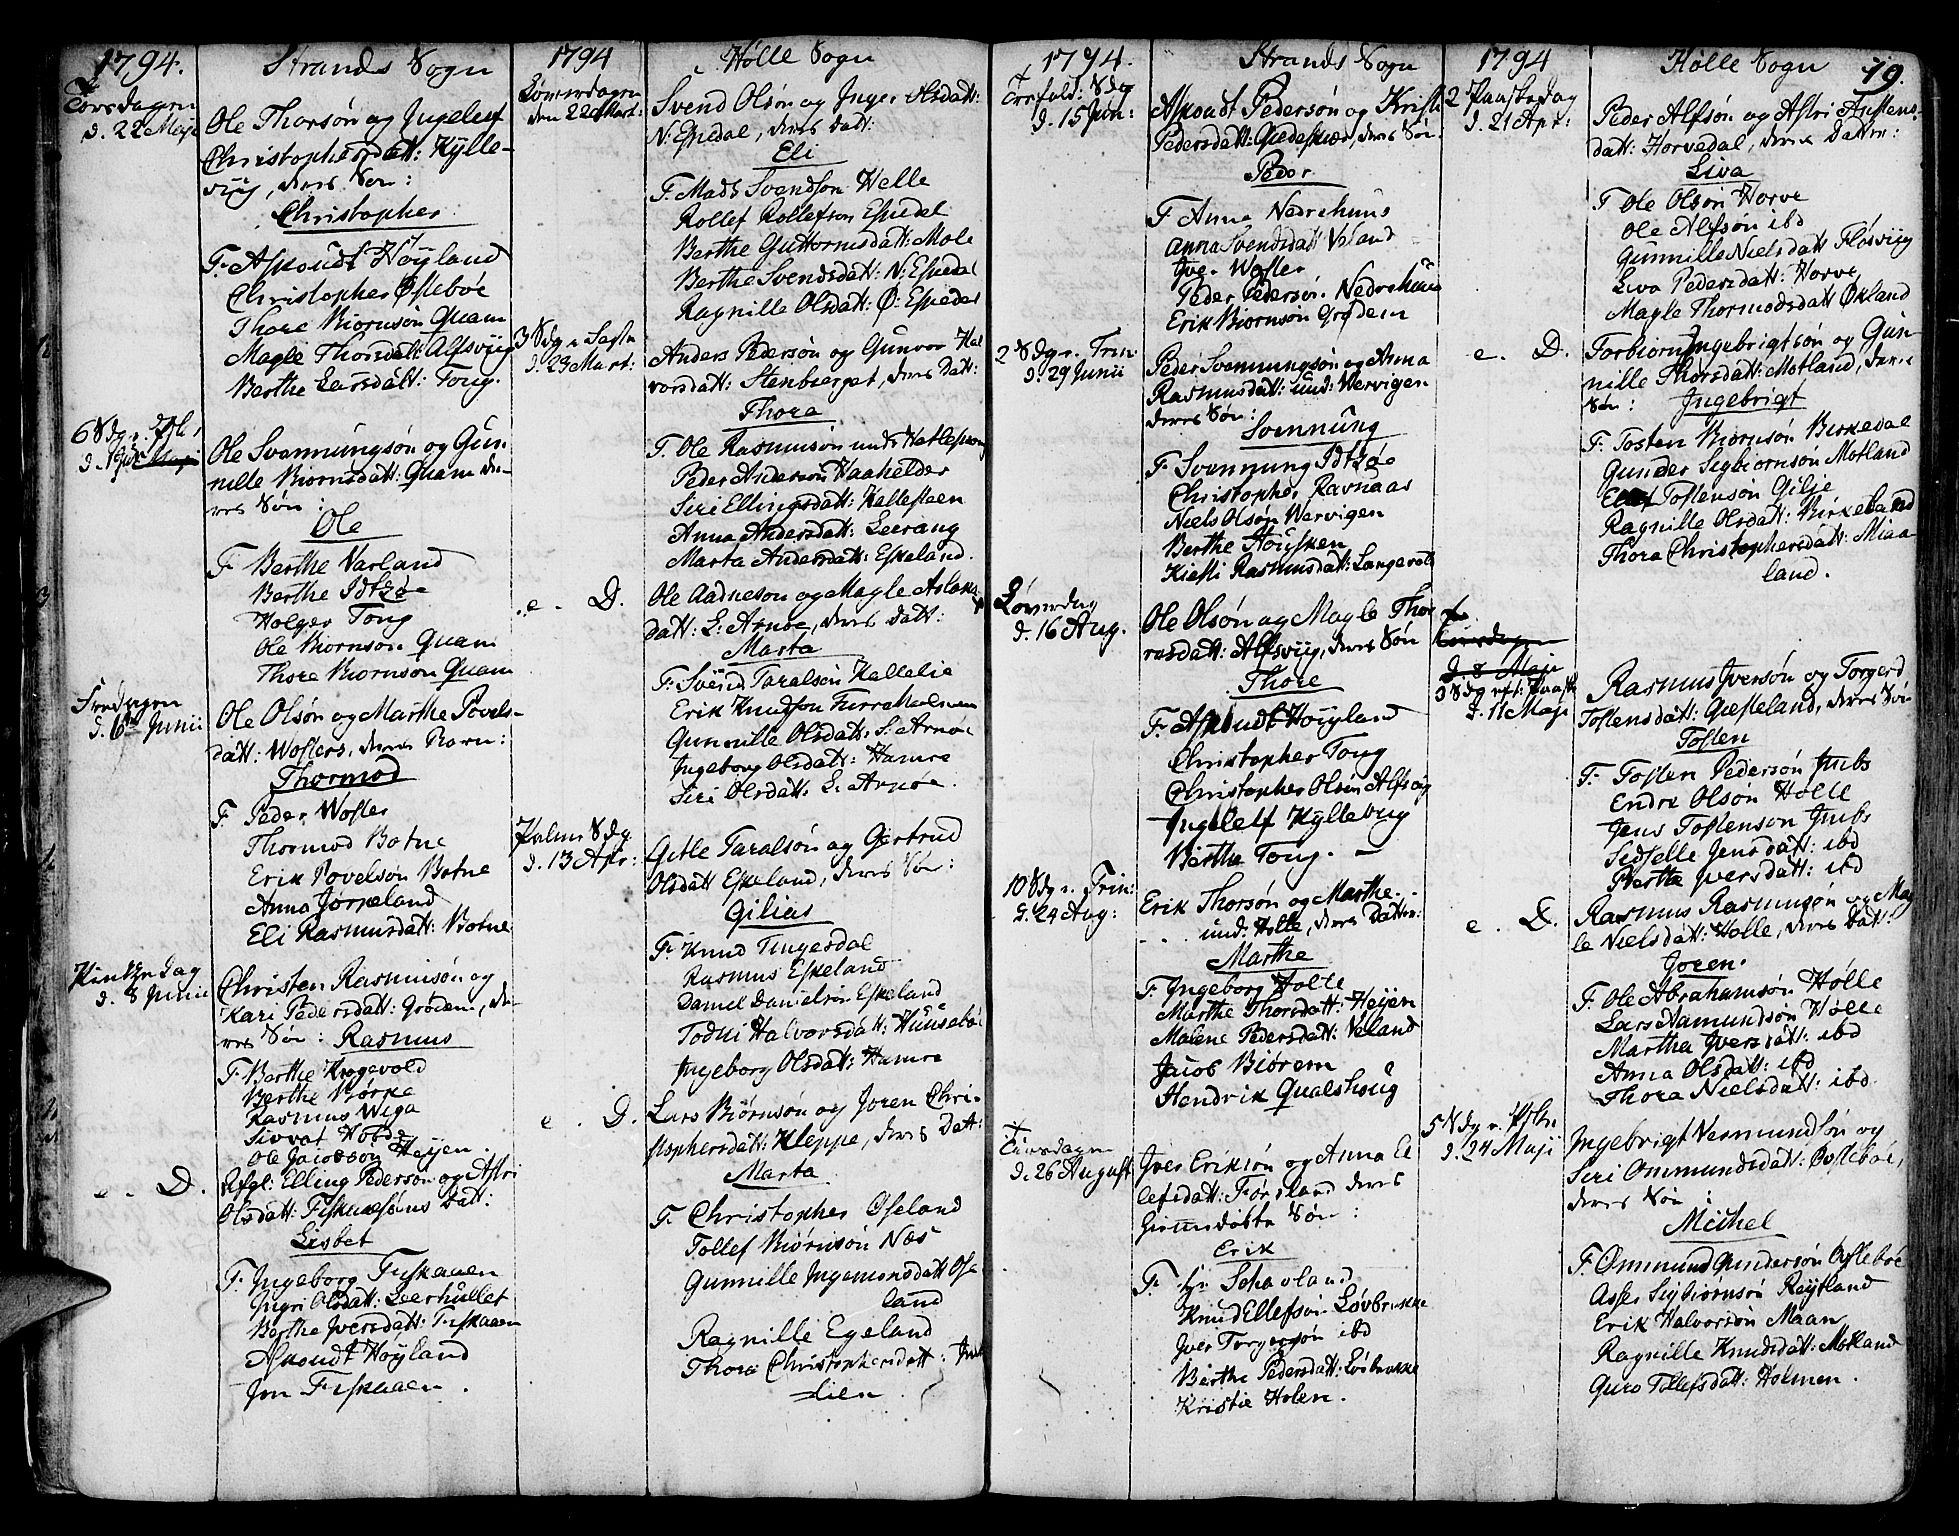 1794.
Strands Sogn
Torsdagen
d. 22 Maji
Ole Thorsøn og Ingelelf
Christophersdatt: Kylle-
viig, deres Søn:
Christopher
F. Askoudt Høyland
Christopher Østebøe
Thore Biornsøn Quam
Magle Thorsdatt: Alfsviig
Berthe Larsdatt: Tong.
6 Sdg.
Ole Svennungsøn og Gun-
nille Biornsdatt: Quam de-
res Søn:
Ole
F. Berthe Varland
Berthe Idtzøe
Holger Tong
Ole Biornson Quam
Thore Biornson Quam
Fredagen
d. 6te Junii
Ole Olsøn og Marthe Povels-
datt: Wosters, deres Barn:
Thormod
F. Peder Woster
Thormod Botne
Erik Povelsøn Botne
Anna Jørpeland
Eli Rasmusdatt: Botne
Pintzedag
d. 8 Junii
Christen Rasmusøn og
Kari Pedersdatt: Grødem, de-
res Søn: Rasmus
F. Berthe Krogevold
Berthe Biørke
Rasmus Wiga
Sivvat
Ole Jacobson Heyen.
e. D.
Afgl: Elling Pederson og Astri
Olsdatt: Fiskaaens Datt:
Lisbet
F. Ingeborg Fiskaaen
Ingri Olsdatt: Leerhullet
Berthe Iversdatt: Fiskaaen
Askoudt Høyland
Jon Fiskaaen.
1794
Hølle Sogn
Løverdagen
den 22d Mart:
Svend Olsøn og Inger Olsdatt:
N: Espedal, deres Datt:
Eli
F. Mads Svendsøn Helle
Rollef Rollefson Espedal
Berthe Guttormsdatt: Mole
Berthe Svendsdatt: N: Espedal
Ragnille Olsdatt: Ø: Espedal
3 Sdg i Fastn
d. 23 Mart:
Anders Pedersøn og Gunvor Hal
vorsdatt: Stenberget, deres Datt:
Thora
F. Ole Rasmuson und: Hatleskoug
Peder Andersøn Haahelder
Siri Ellingsdatt: Hallesteen
Anna Andersdatt: Leerang
Marta Andersdatt: Eskeland.
e. D.
Ole Aadneson og Magle Aslaks
datt: L: Arnøe, deres Datt:
Marta
F. Svend Taralsøn Kallelie
Erik Knudsøn Furreholmen
Gunnille Olsdatt: S: Arnøe
Ingeborg Olsdatt: Hamre
Siri Olsdatt: L: Arnøe.
Palme Sdg
d. 13 Apr:
Gitle Taralsøn og Giertrud
Olsdatt Eskeland, deres Søn:
Gilias
F. Knud Tingesdal
Rasmus Eskeland
Daniel Danielsøn Eskeland
Todni Halvorsdatt: Hunsebøe
Ingeborg Olsdatt: Hamre
e. D.
Lars Biørnsøn og Joren Chri-
stophersdatt: Kleppe, deres Datt:
Marta
F. Christopher Øseland
Tollef Biørnsøn Næs
Gunnille Ingemonsdatt Øse
land
Ragnille Egeland
Thora Christophersdatt:
lien.
1794.
Strands Sogn
Trefold: Sdg
d. 15 Jun:
Askoudt Pedersøn og Kristi
Pedersdatt: Giedeskær, deres Søn
Peder
F Anna Nedrehuus
Anna Svendsdatt Veland
Iver Woster
Peder Pedersøn Nedrehuus
Erik Biornsøn Grødem
2 Sdg e. Trin.
d. 29 Junii
Peder Svennungsøn og Anna
Rasmusdatt: und: Wervigen
deres Søn:
Svennung
F. Svennung Idtzøe
Christopher Ravnaas
Niels Olsøn Wervigen
Berthe Høusken
Kisti Rasmusdatt: Langevatt
Løverdag
d. 16 Aug.
Ole Olsøn og Magle Thor
rasdatt: Alfsviig, deres Søn
Thore
F. Askoudt Høyland
Christopher Tong
Christopher Olsøn Alfsvig
Ingelelf Kyllevug
Berthe Tong.
10 Sdg e. Trin:
d. 24 Aug:
Erik Thorsøn og Marthe
und: Holle, deres Datter:
Marthe
F. Ingeborg Holle
Marthe Thorsdatt: Heyen
Malene Pedersdatt: Veland
Jacob Biørem
Hendrik Qualshoug
Tiirsdagen
d. 26 August
Iver Eriksøn og Anna El
lefsdatt: Førsland deres
Giemdøbte Søn:
Erik
F. hr Schavland
Knud Ellefsøn Løvbrekke
Iver Torgersøn ibd
Berthe Pedersdatt: Løvbrekke
Kristie Holen.
1794
Hølle Sogn
79.
2 Paaskedag
d. 21 Apr:
Peder Alfsøn og Astri Austens-
datt: Horvedal, deres Datter:
Liva
F Ole Olsøn Horve
Ole Alfsøn ibd
Gunnille Nielsdatt Fløsviig
Liva Pedersdatt: Horve
Magle Thormodsdatt Økland
e. D.
Torbiorn Ingebrigtsøn og Gun-
nille Thorsdatt: Motland, deres
Søn: Ingebrigt
F. Tosten Biornsøn Birkedal
Gunder Sigbiornsøn Motland
Tostensøn Gilje
Ragnille Olsdatt: Birkeland
Thora Christophersdatt: Miaa
land.
Tiirsdagen
d. 8 Maji
3 Sdg eft: Paask
d. 11 Maji
Rasmus Iversøn og Torgerd
Tostensdatt: Giesteland, deres Søn
Tosten
F. Tosten Pedersøn Imbs
Endre Olsøn Hølle
Jens Tostenson Imbs
Sidselle Jensdatt: ibd
Berthe Iversdatt: ibd
e. D.
Rasmus Rasmusøn og Mag
le Nielsdatt: Hølle, deres Datt:
Joren.
F. Ole Abrahamsøn Hølle
Lars Aamundsøn Hølle
Martha Iversdatt: ibd
Anna Olsdatt: ibd
Thora Nielsdatt: ibd.
5 Sdg e. Paske
d. 24 Maji
Ingebrigt Vermundsøn og
Siri Ommundsdatt: Østebøe,
deres Søn:
Michel
F. Ommund Gundersøn Østebøe
Asser Sigbiørnsøn Røytland
Erik Halvorsøn Maan
Ragnille Knudsdatt: Motland
Guro Tollefsdatt: Holmen.